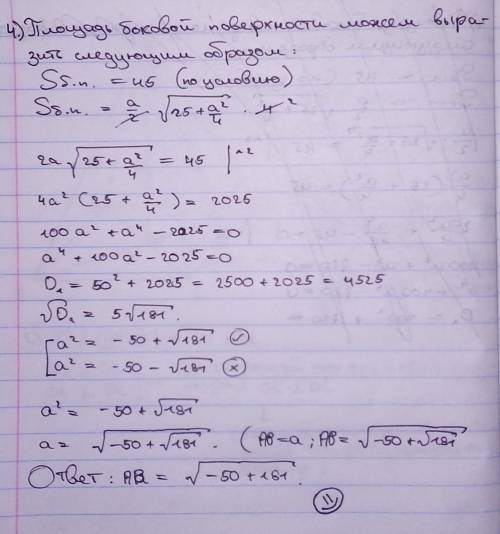 4.) Площадь боковой поверхности можем выра-
зить следующим образом:
Sб.п. = 45 (по условию)
Sб.п. = a/2 · √(25 + a²/4) · 4 ²
2a √(25 + a²/4) = 45 |^2
4a² (25 + a²/4) = 2025
100a² + a⁴ - 2025 = 0
a⁴ + 100a² - 2025 = 0
D₁ = 50² + 2025 = 2500 + 2025 = 4525
√D₁ = 5√181.
[a² = -50 + √181 ✓
[a² = -50 - √181 ×
a² = -50 + √181
a = √(-50 + √181). (AB = a; AB = √(-50 + √181)
Ответ: AB = √(-50 + 181).